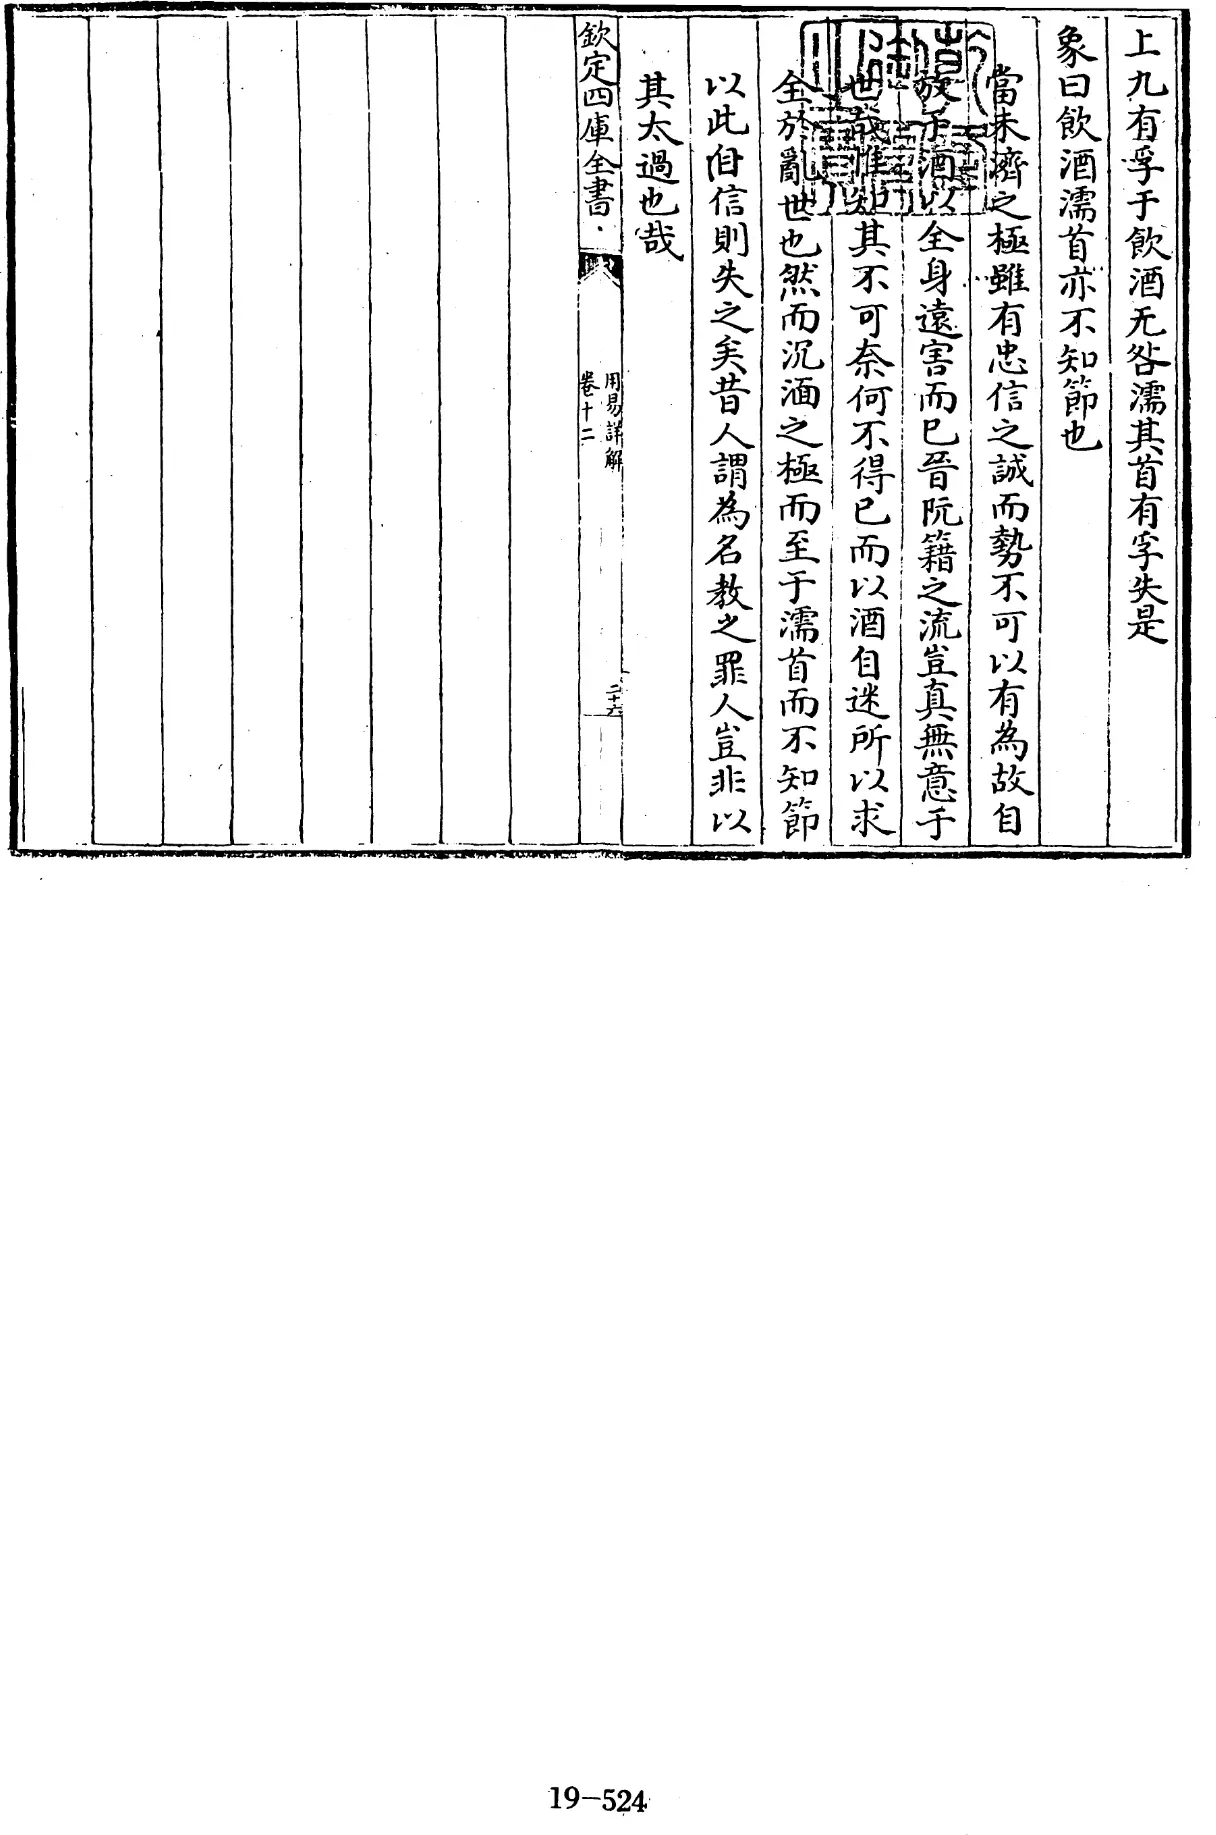 上九有孚于飲酒无咎濡其首有孚失是
象曰飲酒濡首亦不知節也
當未濟之極雖有忠信之誠而勢不可以有為故自
放于酒以全身遠害而已晉阮籍之流豈真無意于
世哉惟知其不可奈何不得已而以酒自迷所以求
全於亂世也然而沉湎之極而至于濡首而不知節
以此自信則失之矣昔人謂為名教之罪人豈非以
其太過也哉
欽定四庫全書
用易詳解
卷十二
二十六
19-524